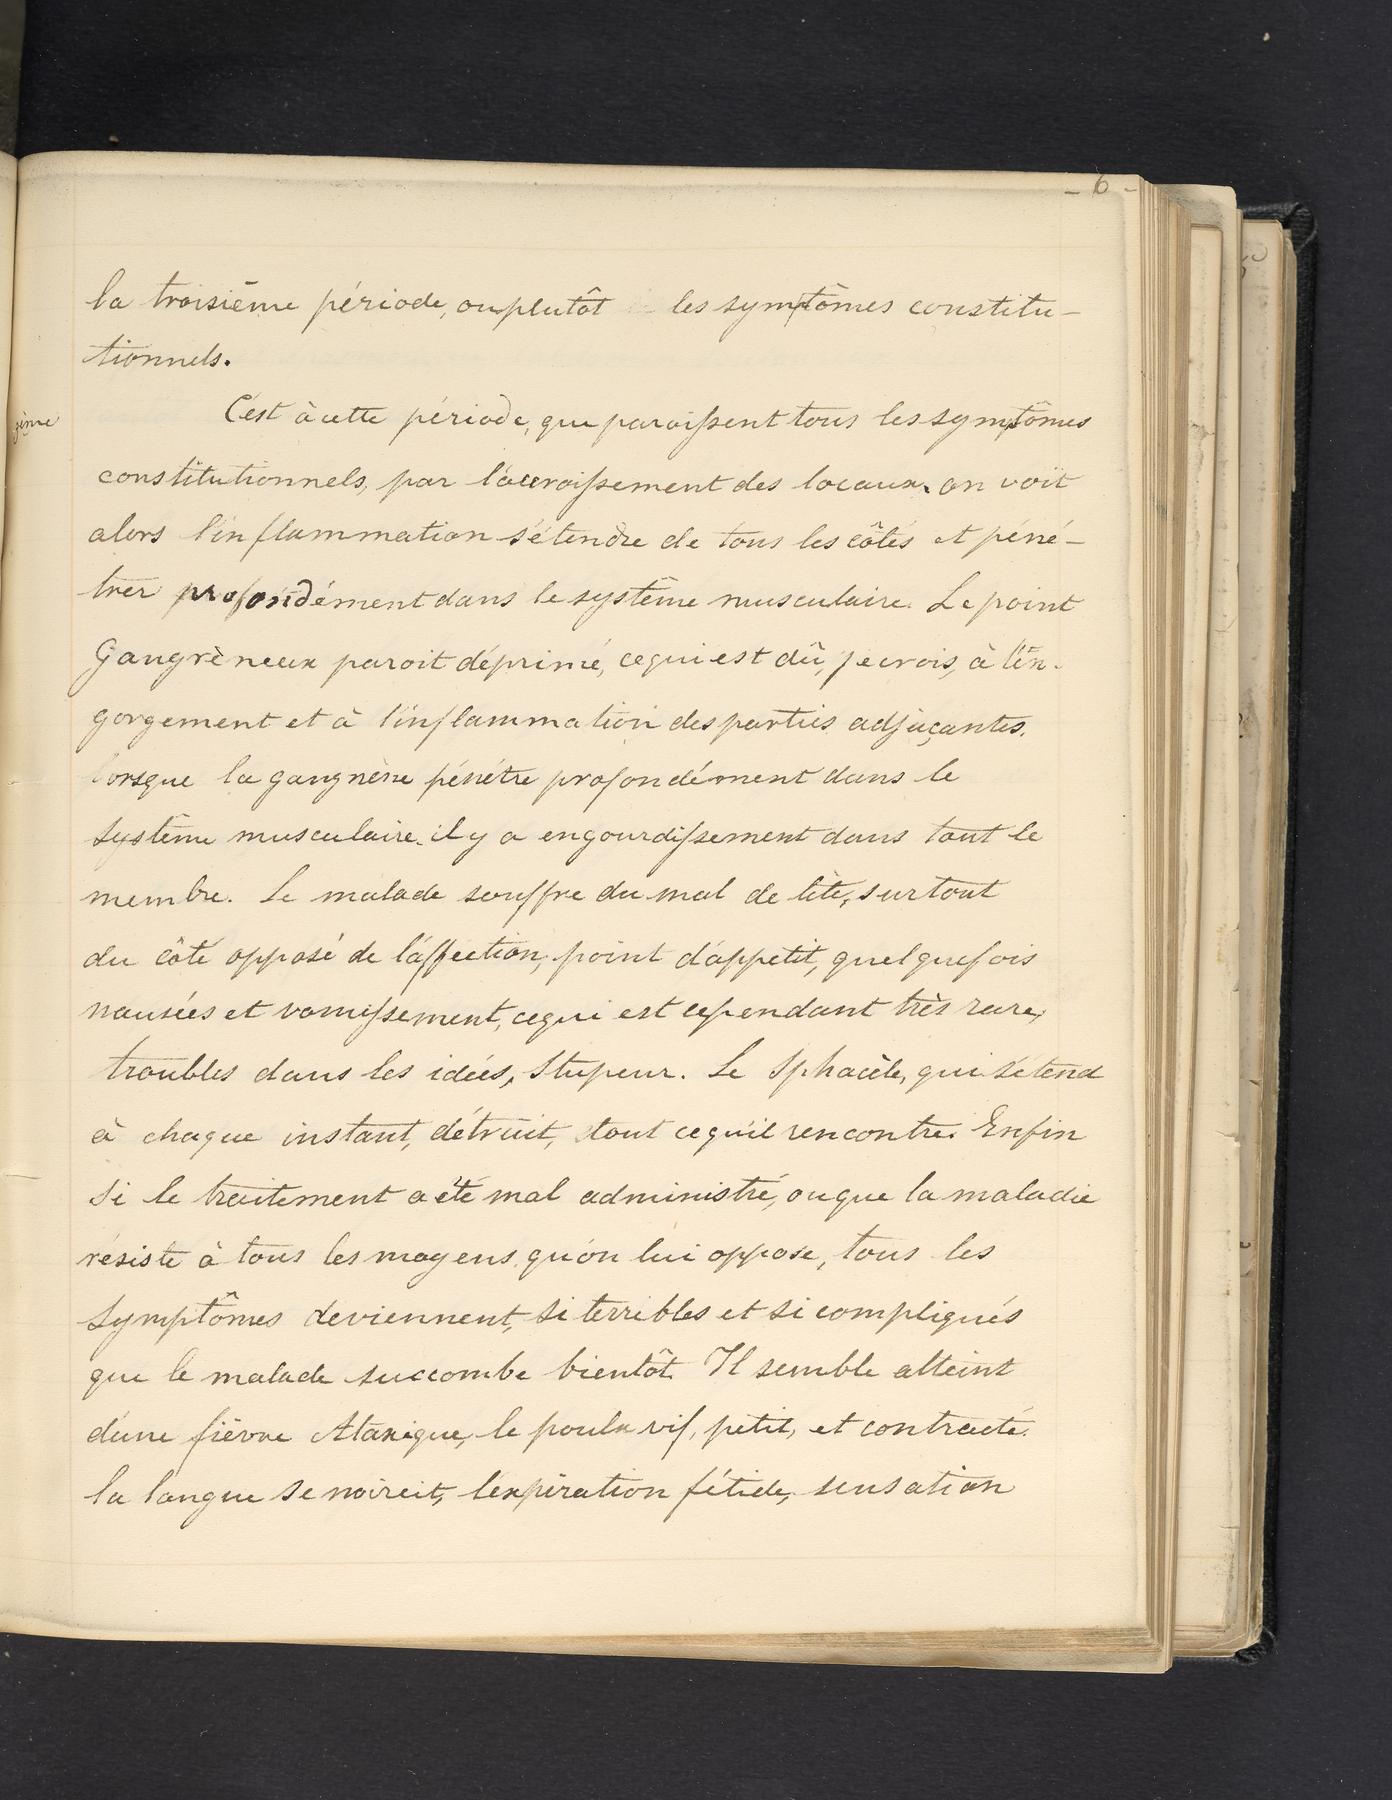 - 6 -
la troisième période, ou plutôt les symptômes constitu-
tionnels.
C'est à cette période, que paroissent tous les symptômes
constitutionnels, par l'accroissement des locaux. on voit
alors l'inflammation s'étendre de tous les côtés et péné-
trer profondément dans le système musculaire. Le point
Gangrèneux paroit déprimé, ce qui est dû, je crois, à l'en-
gorgement et à l'inflammation des parties adjaçantes.
lorsque la gangrène pénètre profondément dans le
système musculaire. il y a engourdissement dans tout le
membre. Le malade souffre du mal de tête, surtout
du côté opposé de l'affection, point d'appetit, quelquefois
nausées et vomissement, ce qui est cependant très rare,
troubles dans les idées, stupeur. Le Sphacèle, qui s'étend
à chaque instant, détruit, tout ce qu'il rencontre. Enfin
si le traitement a été mal administré, ou que la maladie
résiste à tous les moyens qu'on lui oppose, tous les
symptômes deviennent, si terribles et si compliqués
que le malade succombe bientôt. Il semble atteint
d'une fièvre Ataxique, le poulx vif, petit, et contracté.
la langue se noircit, l'expiration fétide, sensation